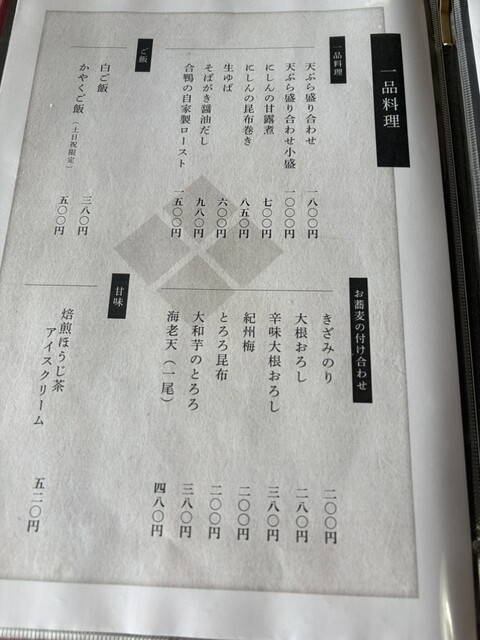 一品料理
一品料理
天ぷら盛り合わせ 一八〇〇円
天ぷら盛り合わせ小盛 一〇〇〇円
にしんの甘露煮 七〇〇円
にしんの昆布巻き 八五〇円
生ゆば 六〇〇円
そばがき醤油だし 九八〇円
合鴨の自家製ロースト 一五〇〇円
ご飯
白ご飯 三八〇円
かやくご飯（土日祝限定） 五〇〇円
お蕎麦の付け合わせ
きざみのり 二〇〇円
大根おろし 二八〇円
辛味大根おろし 三八〇円
紀州梅 二〇〇円
とろろ昆布 二〇〇円
大和芋のとろろ 三八〇円
海老天（一尾） 四八〇円
甘味
焙煎ほうじ茶
アイスクリーム 五二〇円